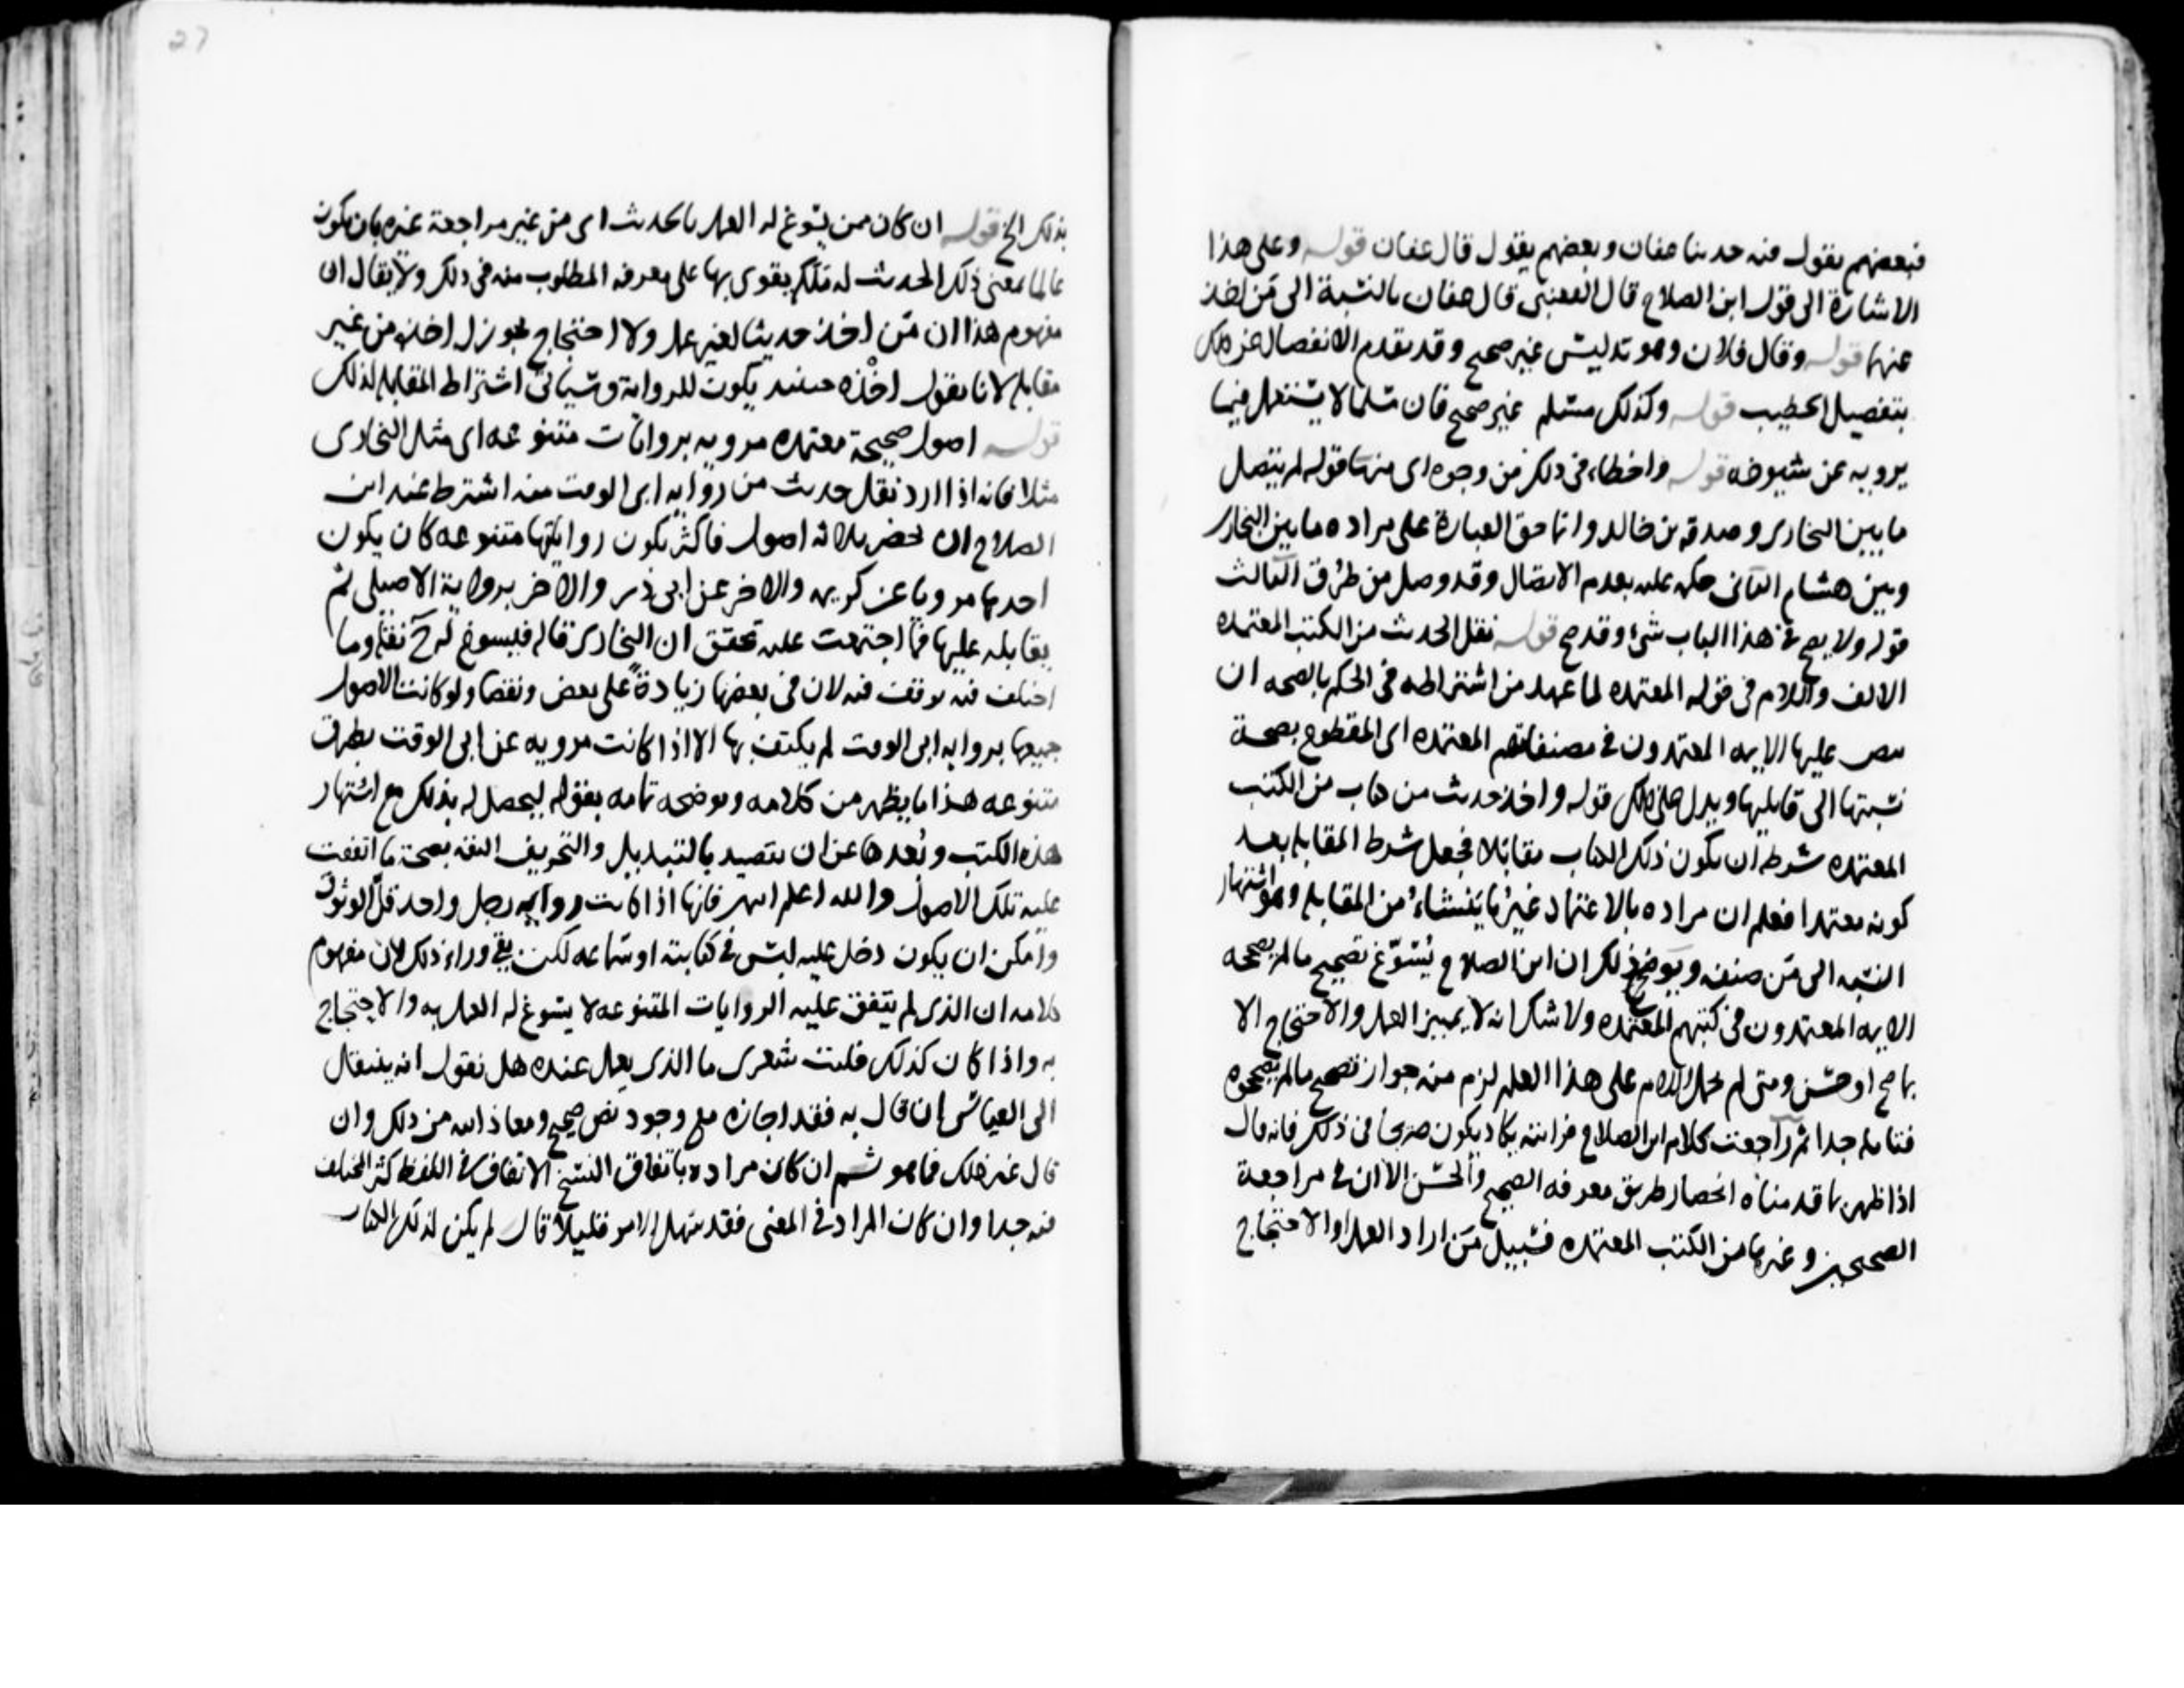 فبعضهم يقول فيه حدثنا عفان وبعضهم يقول قال عفان قوله وعلى هذا
الاشارة الى قول ابن الصلاح قال القعنبي قال عفان بالنسبة الى من اخذ
عنهما قوله وقال فلان وهو تدليس غير صحيح وقد تقدم الانفصال عن ذلك
بتفصيل الخطيب قوله وكذلك مسلم غير صحيح فان مسلما لا يستعمل فيما
يرويه عن شيوخه قوله واخطاء في ذلك من وجوه اي منها قوله لم يتصل
ما بين البخاري وصدقة بن خالد وانما حق العبارة على مراده ما بين البخاري
وبين هشام الثاني حكمه عليه بعدم الاتصال وقد وصل من طرق الثالث
قوله ولا يصح في هذا الباب شئ وقد صح قوله نقل الحديث من الكتب المعتمده
الالف واللام في قوله المعتمده لما عهد من اشتراطه في الحكم بالصحه ان
ينص عليها الايمه المعتمدون في مصنفاتهم المعتمده اي المقطوع بصحة
نسبتها الى قايليها ويدل على ذلك قوله واخذ حديث من كتاب من الكتب
المعتمده شرطه ان يكون ذلك الكتاب مقابلا فجعل شرط المقابله بعد
كونه معتمدا فعلم ان مراده بالاعتماد غير ما ينشاء من المقابله وهو اشتهار
النسبه الى من صنفه ويوضح ذلك ان ابن الصلاح يسوغ تصحيح مالم يصححه
الايمه المعتمدون في كتبهم المعتمده ولا شك انه لا يميز العمل والاحتجاج الا
بما صح او حسن ومتى لم تحمل اللام على هذا العلم لزم منه جواز تصحيح مالم يصححوه
فتامله جدا ثم راجعت كلام ابن الصلاح فرايته يكاد يكون صريحا في ذلك فانه قال
اذا ظهر بما قدمناه انحصار طريق معرفه الصحيح والحسن الان في مراجعة
الصحيحين وغيرهما من الكتب المعتمده فسبيل من اراد العمل او الاحتجاج
27
بذلك الخ قوله ان كان ممن يسوغ له العمل بالحديث اي من غير مراجعة غيره بان يكون
عالما بمعنى ذلك الحديث له ملكه يقوى بها على معرفه المطلوب منه في ذلك ولا يقال ان
مفهوم هذا ان من اخذ حديثا لغير عمل ولا احتجاج يجوز له اخذه من غير
مقابله لانا نقول اخذه حينيذ يكون للرواية وسياتي اشتراط المقابله لذلك
قوله اصول صحيحة معتمده مرويه بروايات متنوعه اي مثل البخاري
مثلا فانه اذا اراد نقل حديث من روايه ابي الوقت منه اشترط عند ابن
الصلاح ان يحضر ثلاثه اصول فاكثر يكون رواياتها متنوعه كان يكون
احدها مرويا عن كريمه والاخر عن ابي ذر والاخر برواية الاصيلي ثم
يقابله عليها فما اجتمعت عليه تحقق ان البخاري قاله فيسوغ له ح نقله وما
اختلف فيه توقف فيه لان في بعضها زيادة على بعض ونقصا ولو كانت الاصول
جميعها بروايه ابي الوقت لم يكتف بها الا اذا كانت مرويه عن ابي الوقت بطرق
متنوعه هذا ما يظهر من كلامه ويوضحه تمامه بقوله ليحصل له بذلك مع اشتهار
هذه الكتب وبعدها عن ان تقصد بالتبديل والتحريف الثقه بصحة ما اتفقت
عليه تلك الاصول والله اعلم انتهى فانها اذا كانت روايه رجل واحد قل الوثوق
وامكن ان يكون دخل عليه لبس في كتابته او سماعه لكن بقي وراء ذلك ان مفهوم
كلامه ان الذي لم يتفق عليه الروايات المتنوعه لا يسوغ له العمل به والاحتجاج
به واذا كان كذلك فليت شعرى ما الذي يعمل عنده هل نقول انه ينتقل
الى القياس ان قال به فقد اجازه مع وجود نص صحيح ومعاذ الله من ذلك وان
قال غير ذلك فما هو ثم ان كان مراده باتفاق النسخ الاتفاق في اللفظ كثر المختلف
فيه جدا وان كان المراد في المعنى فقد سهل الامر قليلا قال لم يكن لذلك الكتاب